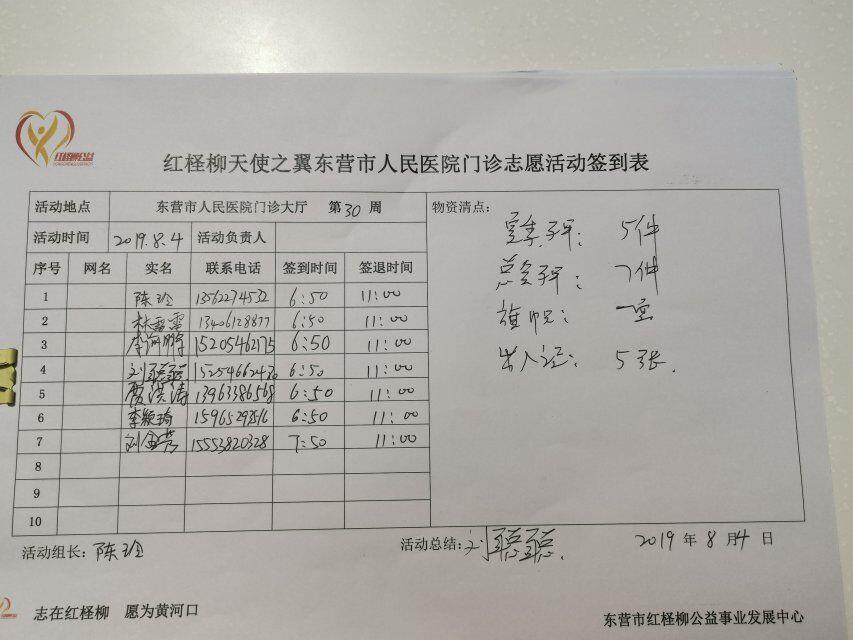 红柽柳公益
红柽柳天使之翼东营市人民医院门诊志愿活动签到表
活动地点 东营市人民医院门诊大厅 第30周 物资清点:
活动时间 2019.8.4 活动负责人
5件
序号 网名 实名 联系电话 签到时间 签退时间
7件
1 陈玲 13562274532 6:50 11:00
2 林雷雷 13406128877 6:50 11:00
旗帜: 一宝
3 15205462175 6:50 11:00
出入证: 5张.
4 刘聪聪 15254662470 6:50 11:00
5 贾洪涛 13963386568 6:50 11:00
6 李颖琦 15965298516 6:50 11:00
7 刘金芳 15553820328 7:50 11:00
8
9
10
活动组长: 陈玲 活动总结: 刘聪聪. 2019年8月4日
志在红柽柳 愿为黄河口
东营市红柽柳公益事业发展中心